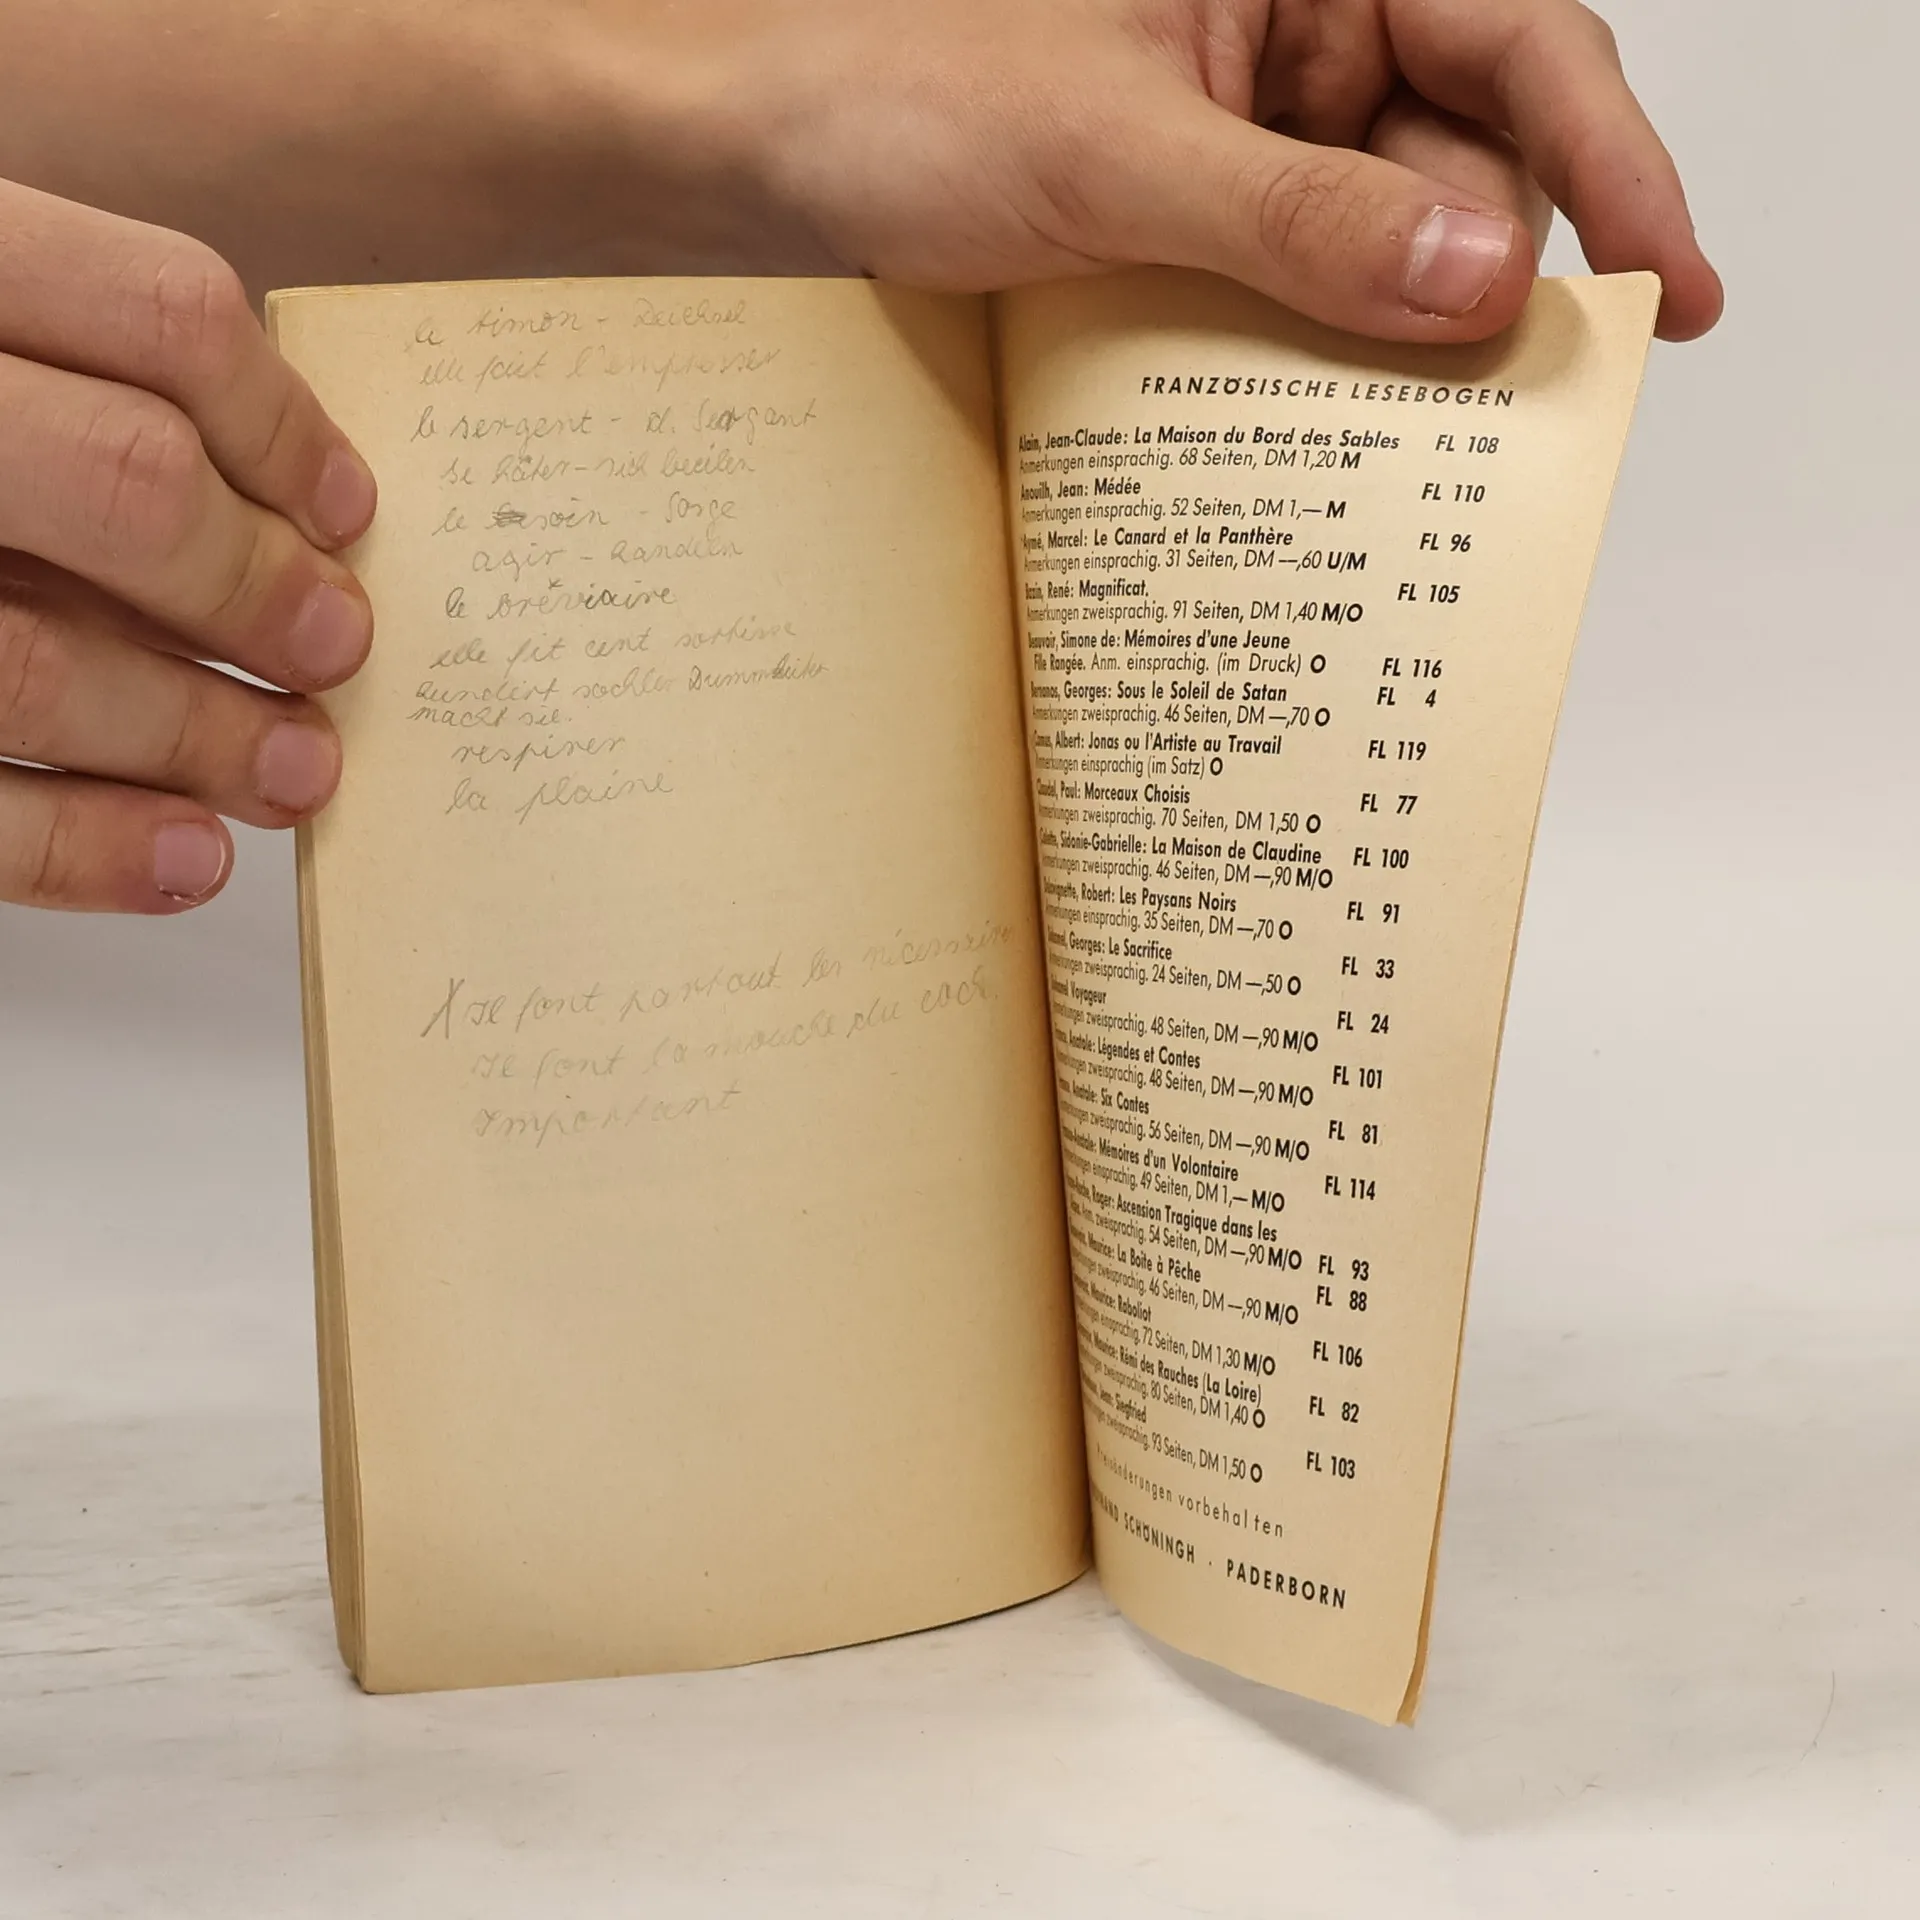 le timon - Deichsel
elle fait l'empresser
le sergent - d. Sergant
se hâter - sich beeilen
le soin - Sorge
agir - handeln
le bréviaire
elle fit cent sottise
hundert Dummheiten
macht sie.
respirer
la plaine
X Il font partout les nécessaires
Il font la mouche du coch.
Important
FRANZÖSISCHE LESEBOGEN
Alain, Jean-Claude: La Maison du Bord des Sables FL 108
Anmerkungen einsprachig. 68 Seiten, DM 1,20 M
Anouilh, Jean: Médée FL 110
Anmerkungen einsprachig. 52 Seiten, DM 1,— M
Aymé, Marcel: Le Canard et la Panthère FL 96
Anmerkungen einsprachig. 31 Seiten, DM —,60 U/M
Bazin, René: Magnificat. FL 105
Anmerkungen zweisprachig. 91 Seiten, DM 1,40 M/O
Beauvoir, Simone de: Mémoires d'une Jeune
Fille Rangée. Anm. einsprachig. (im Druck) O FL 116
Bernanos, Georges: Sous le Soleil de Satan FL 4
Anmerkungen zweisprachig. 46 Seiten, DM —,70 O
Camus, Albert: Jonas ou l'Artiste au Travail FL 119
Anmerkungen einsprachig (im Satz) O
Claudel, Paul: Morceaux Choisis FL 77
Anmerkungen zweisprachig. 70 Seiten, DM 1,50 O
Colette, Sidonie-Gabrielle: La Maison de Claudine FL 100
Anmerkungen zweisprachig. 46 Seiten, DM —,90 M/O
Delavignette, Robert: Les Paysans Noirs FL 91
Anmerkungen einsprachig. 35 Seiten, DM —,70 O
Duhamel, Georges: Le Sacrifice FL 33
Anmerkungen zweisprachig. 24 Seiten, DM —,50 O
Duhamel Voyageur FL 24
Anmerkungen zweisprachig. 48 Seiten, DM —,90 M/O
France, Anatole: Légendes et Contes FL 101
Anmerkungen zweisprachig. 48 Seiten, DM —,90 M/O
France, Anatole: Six Contes FL 81
Anmerkungen zweisprachig. 56 Seiten, DM —,90 M/O
France, Anatole: Mémoires d'un Volontaire FL 114
Anmerkungen einsprachig. 49 Seiten, DM 1,— M/O
Roger: Ascension Tragique dans les
Anm. zweisprachig. 54 Seiten, DM —,90 M/O FL 93
Maurice: La Boîte à Pêche FL 88
Anmerkungen zweisprachig. 46 Seiten, DM —,90 M/O
Genevoix, Maurice: Raboliot FL 106
Anmerkungen einsprachig. 72 Seiten, DM 1,30 M/O
Genevoix, Maurice: Rémi des Rauches (La Loire) FL 82
Anmerkungen zweisprachig. 80 Seiten, DM 1,40 O
Giraudoux, Jean: Siegfried FL 103
Anmerkungen zweisprachig. 93 Seiten, DM 1,50 O
Preisänderungen vorbehalten
FERDINAND SCHÖNINGH · PADERBORN